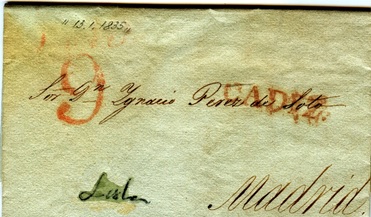 "13.1.1835"
9
Sor Dn Ygnacio Perez de Soto
CADIZ
Madrid.